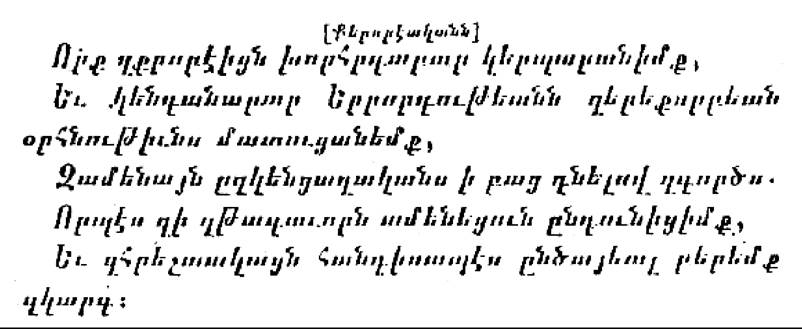 [Քերորէականն]
Ոյք զքրորէիցն խորհրդաբար կերպարանիմք,
Եւ կենդանարար Երրորդութեանն զերեքսրբեան
օրհնութիւնս մատուցանեմք,
Զամենայն ըզկենցաղականս ի բաց դնելով զգործս.
Որպէս զի զԹագաւորն ամենեցուն ընդունիցիմք,
Եւ զՀրեշտակայն հանդիսապէս ընծայեալ բերեմք
զկարգ: